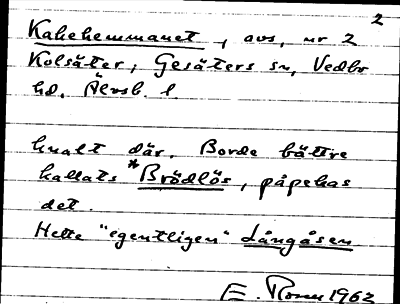 2
Kakehemmanet, avs. nr 2
Kolsäter, Gesäters sn, Vedbo
hd. Älvsb. l.
kvalt där. Borde bättre
kallats *Brödlös, påpekas
det.
Hette "egentligen" Långåsen
E. 1962